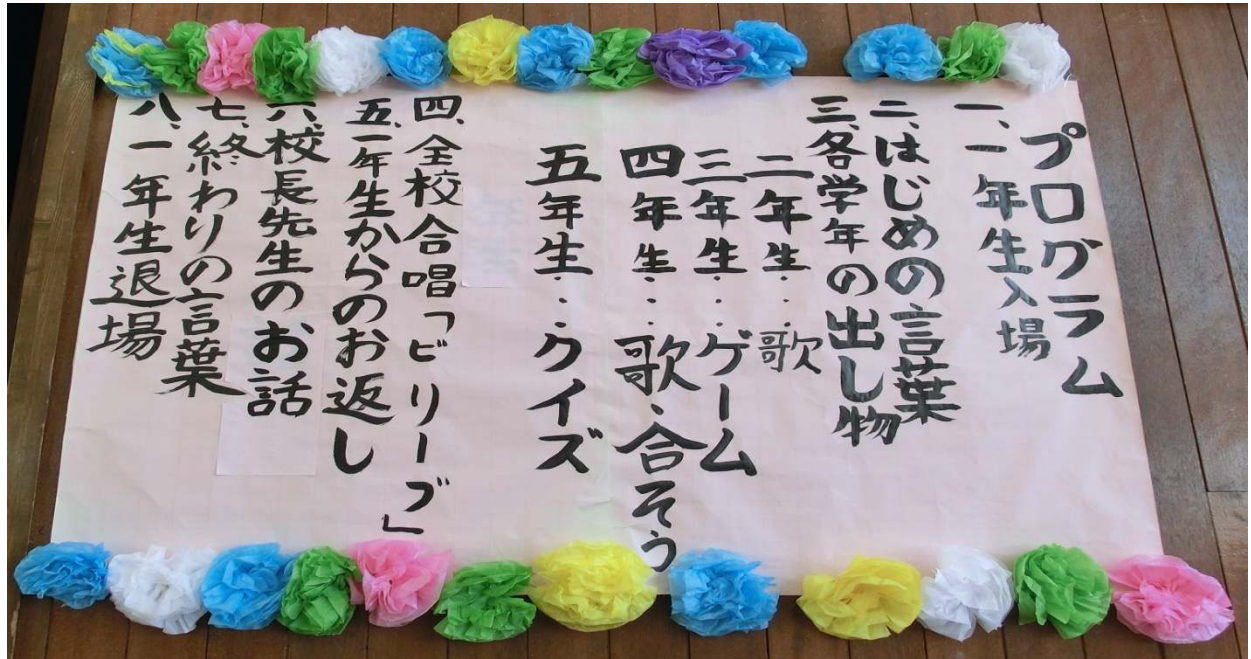 プログラム
一、一年生入場
二、はじめの言葉
三、各学年の出し物
二年生・・歌
三年生・・ゲーム
四年生・・歌・合そう
五年生・・クイズ
四、全校合唱「ビリーブ」
五、一年生からのお返し
六、校長先生のお話
七、終わりの言葉
八、一年生退場